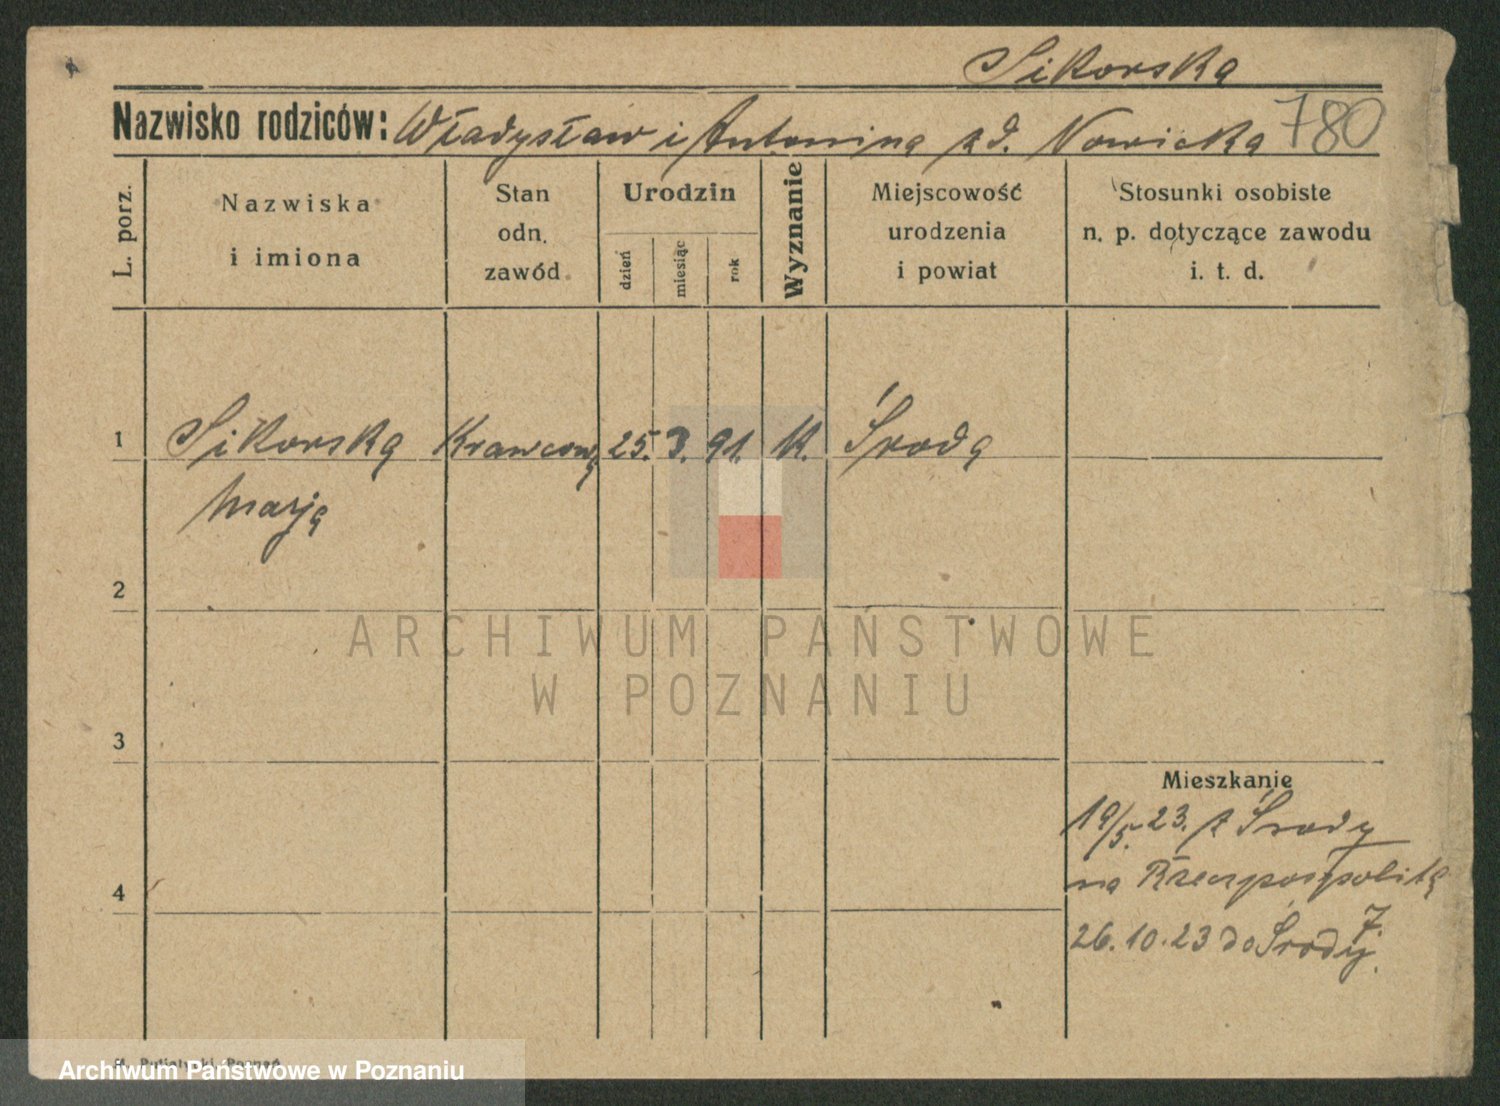 Sikorska
Nazwisko rodziców: Władysław i Antonina zd. Nowicka 780
L. porz.
Nazwiska
i imiona
Stan
odn.
zawód
Urodzin
dzień
miesiąc
rok
Wyznanie
Miejscowość
urodzenia
i powiat
Stosunki osobiste
n. p. dotyczące zawodu
i. t. d.
1 Sikorska Krawcowa 25. 3. 91. K. Środa
Marja
2
ARCHIWUM PAŃSTWOWE
W POZNANIU
3
Mieszkanie
19/5. 23. z Środy
na Rzeczpospolitą
7.
4
26.10.23 do Środy.
Poznań
Archiwum Państwowe w Poznaniu